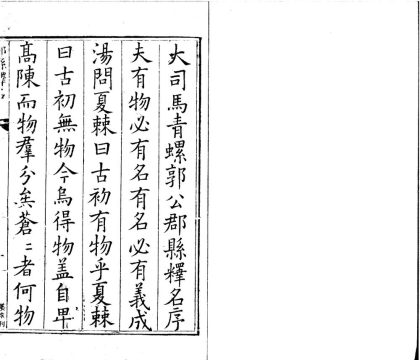 大司馬青螺郭公郡縣釋名序
夫有物必有名有名必有義成
湯問夏棘曰古初有物乎夏棘
曰古初無物今烏得物盖自毕
髙陳而物羣分矣蒼〻者何物